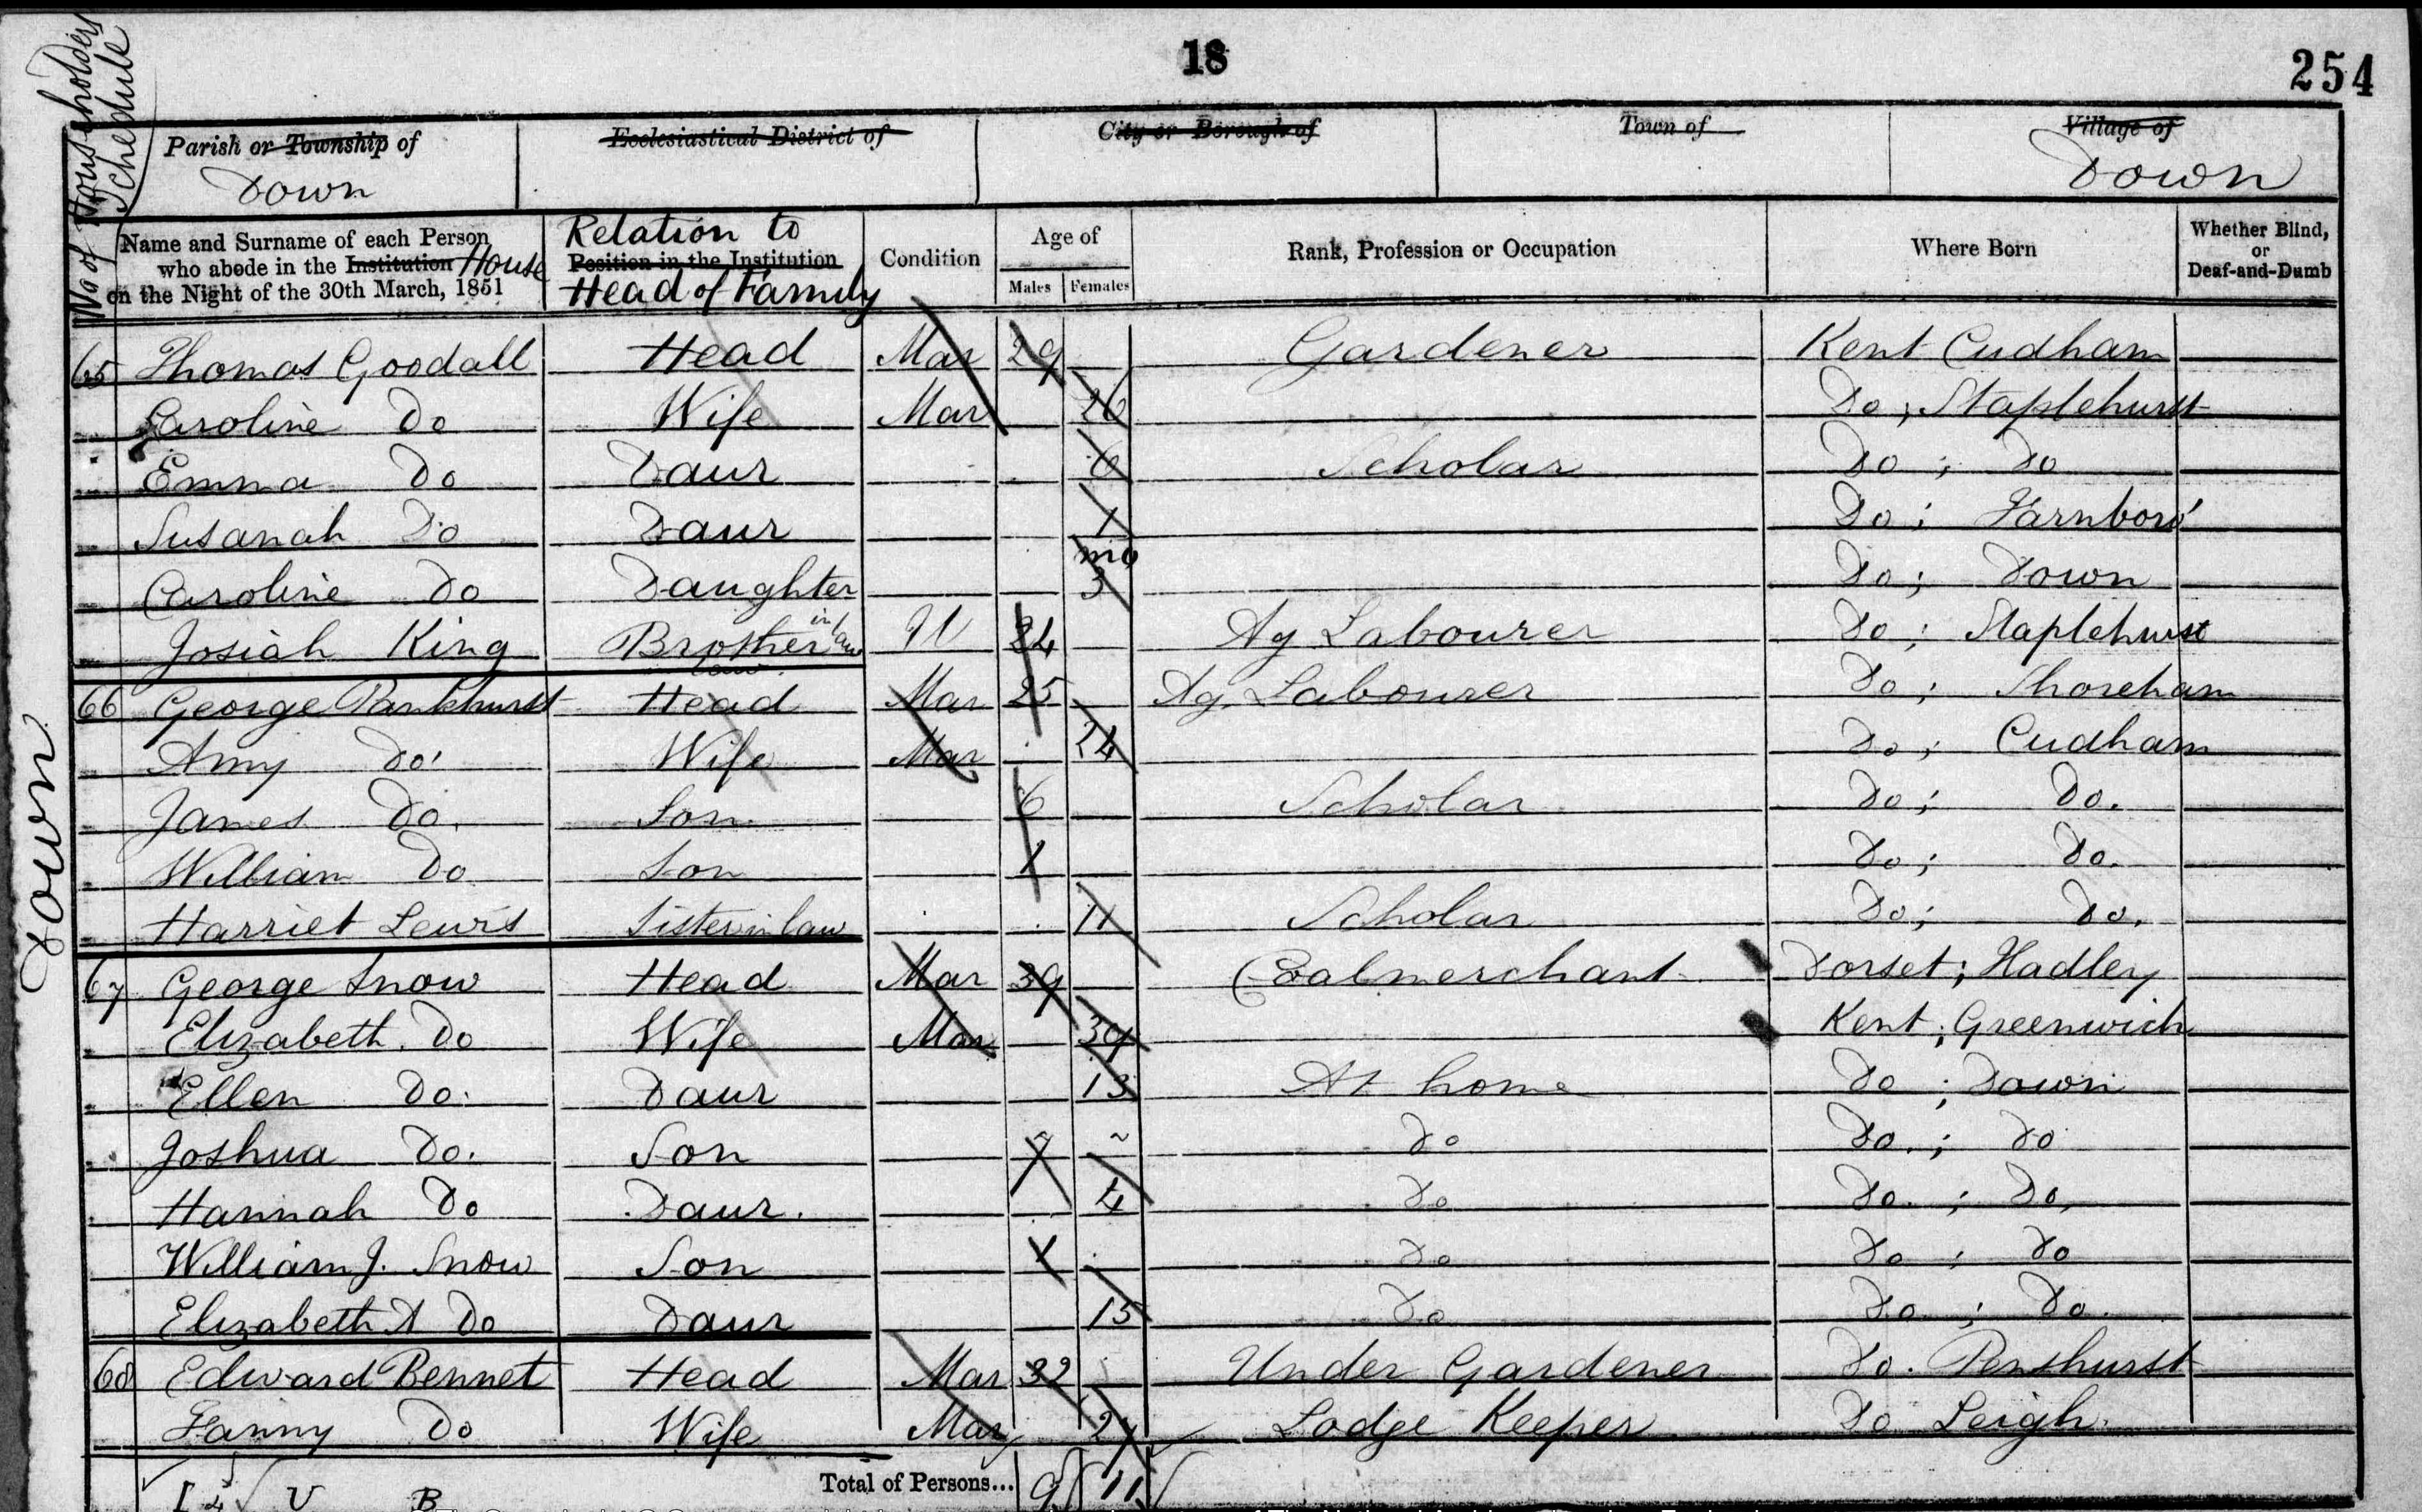 18
254
No of Householders Schedule
Parish or Township of Down
Ecclesiastical District of
City or Borough of
Town of
Village of Down
Name and Surname of each Person who abode in the Institution House on the Night of the 30th March, 1851
Relation to Position in the Institution Head of Family
Condition
Age of
Males Females
Rank, Profession or Occupation
Where Born
Whether Blind, or Deaf-and-Dumb
65 Thomas Goodall Head Mar 29 Gardener Kent Cudham
Caroline Do Wife Mar 26 Do ; Staplehurst
Emma Do Daur 6 Scholar Do ; Do
Susanah Do Daur 1 Do ; Farnboro'
Caroline Do Daughter mo 3 Do ; Down
Josiah King Brother in law U 24 Ag Labourer Do ; Staplehurst
66 George Pankhurst Head Mar 25 Ag. Labourer Do ; Shoreham
Amy Do Wife Mar 24 Do ; Cudham
James Do. Son 6 Scholar Do ; Do.
William Do Son 1 Do ; Do.
Harriet Lewis Sister in law 11 Scholar Do ; Do.
67 George Snow Head Mar 39 Coalmerchant Dorset ; Hadley
Elizabeth Do Wife Mar 39 Kent ; Greenwich
Ellen Do. Daur 13 At home Do ; Down
Joshua Do. Son 7 Do Do. ; Do
Hannah Do Daur. 4 Do Do. ; Do.
William J. Snow Son 1 Do Do ; Do
Elizabeth A Do Daur 15 Do Do ; Do.
68 Edward Bennet Head Mar 32 Under Gardener Do. Penshurst
Fanny Do Wife Mar 27 Lodge Keeper Do Leigh
Total of Persons... 9 11
U B
Down